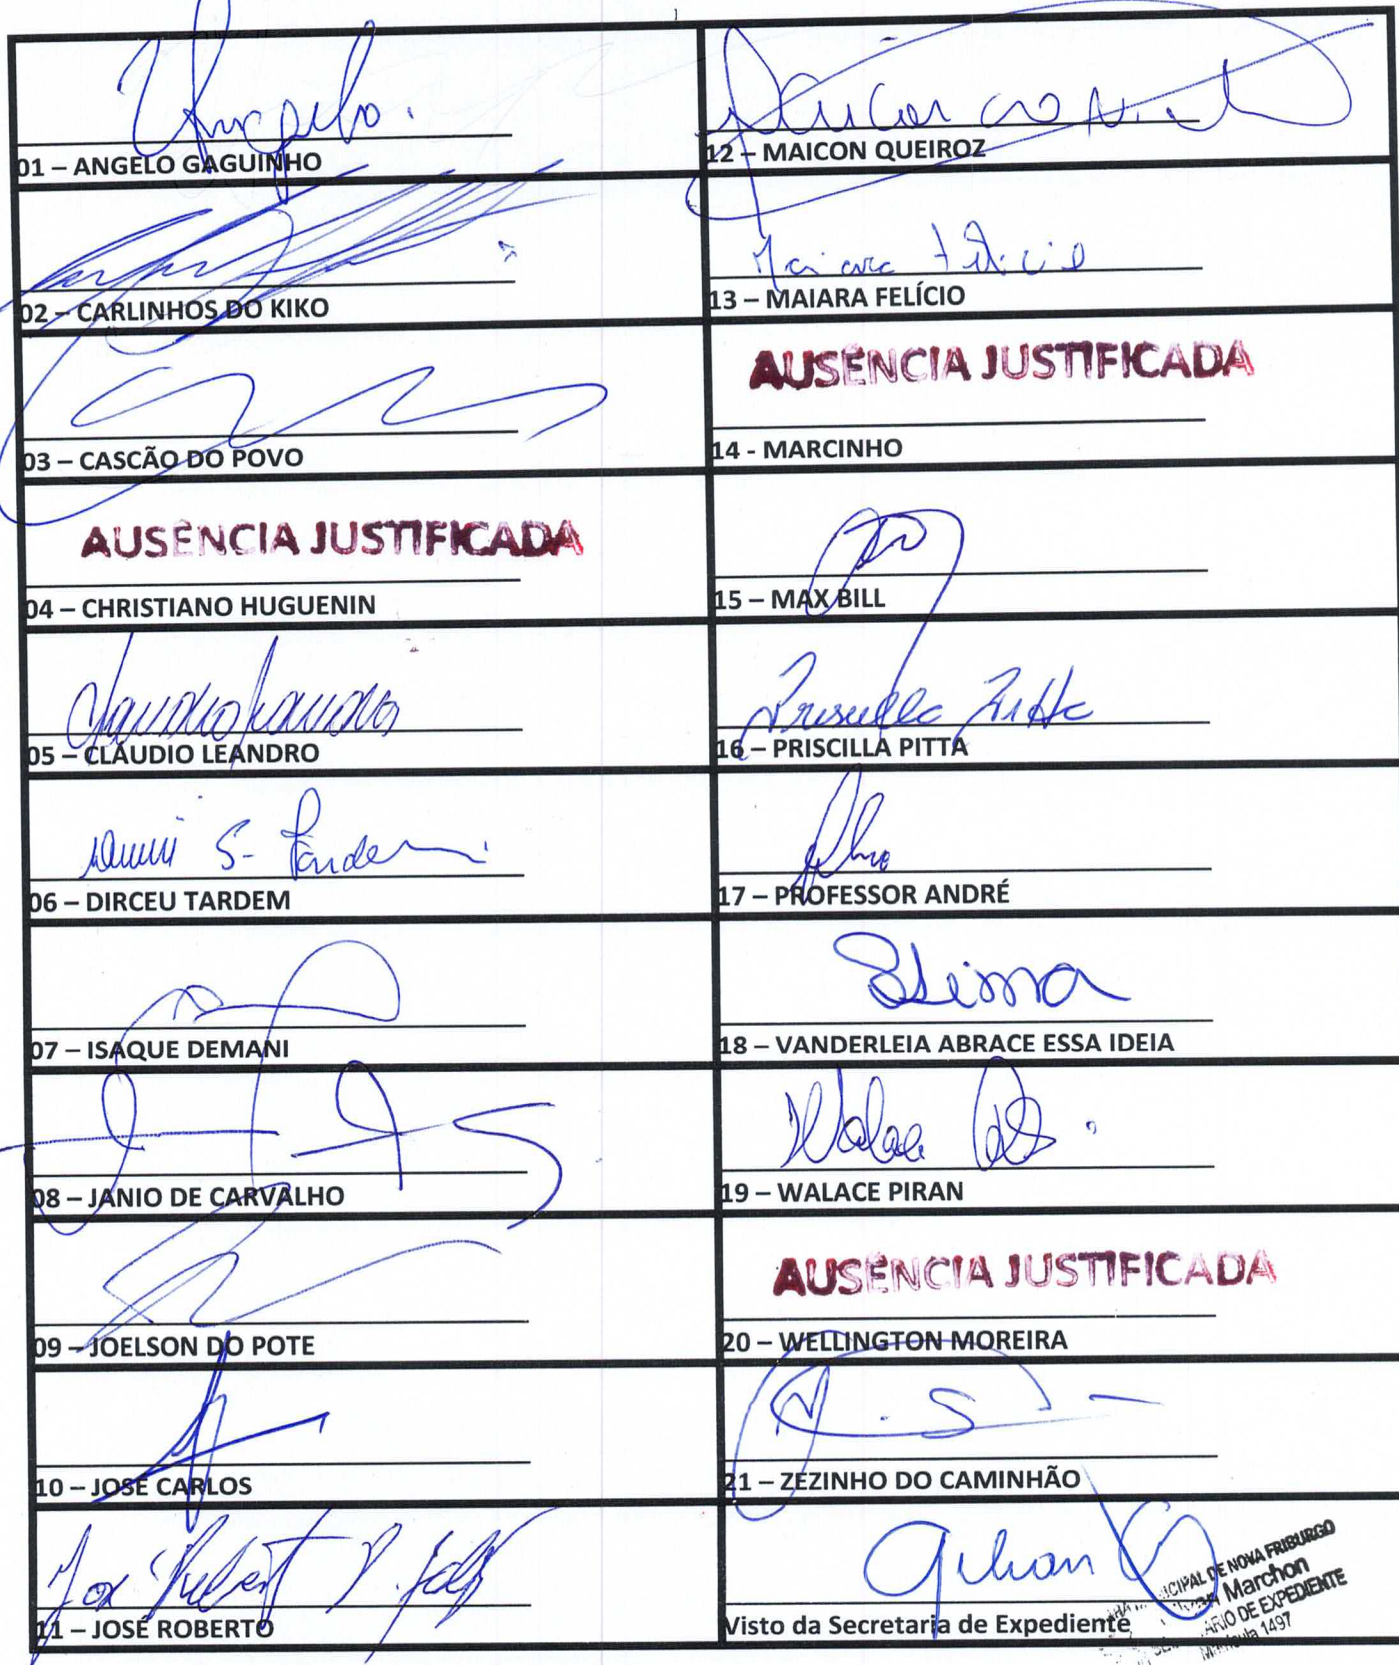 Angelo.
01 – ANGELO GAGUINHO
02 – CARLINHOS DO KIKO
03 – CASCÃO DO POVO
AUSÊNCIA JUSTIFICADA
04 – CHRISTIANO HUGUENIN
Claudio Leandro
05 – CLÁUDIO LEANDRO
S. Tardem
06 – DIRCEU TARDEM
07 – ISAQUE DEMANI
08 – JANIO DE CARVALHO
09 – JOELSON DO POTE
10 – JOSÉ CARLOS
José Robert
11 – JOSÉ ROBERTO
Maicon
12 – MAICON QUEIROZ
Maiara Felício
13 – MAIARA FELÍCIO
AUSÊNCIA JUSTIFICADA
14 - MARCINHO
15 – MAX BILL
Priscilla Pitta
16 – PRISCILLA PITTA
17 – PROFESSOR ANDRÉ
18 – VANDERLEIA ABRACE ESSA IDEIA
Walace
19 – WALACE PIRAN
AUSÊNCIA JUSTIFICADA
20 – WELLINGTON MOREIRA
21 – ZEZINHO DO CAMINHÃO
Visto da Secretaria de Expediente
CIPAL DE NOVA FRIBURGO
Marchon
ÁRIO DE EXPEDIENTE
Matrícula 1497